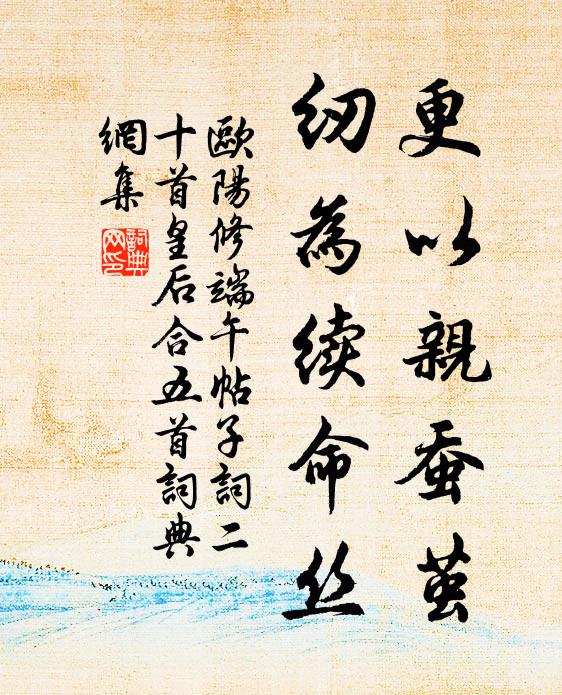 更以親蚕茧
纫為续命丝
歐陽修端午帖子詞二
十首皇后合五首詞典
網集
詞典
网印